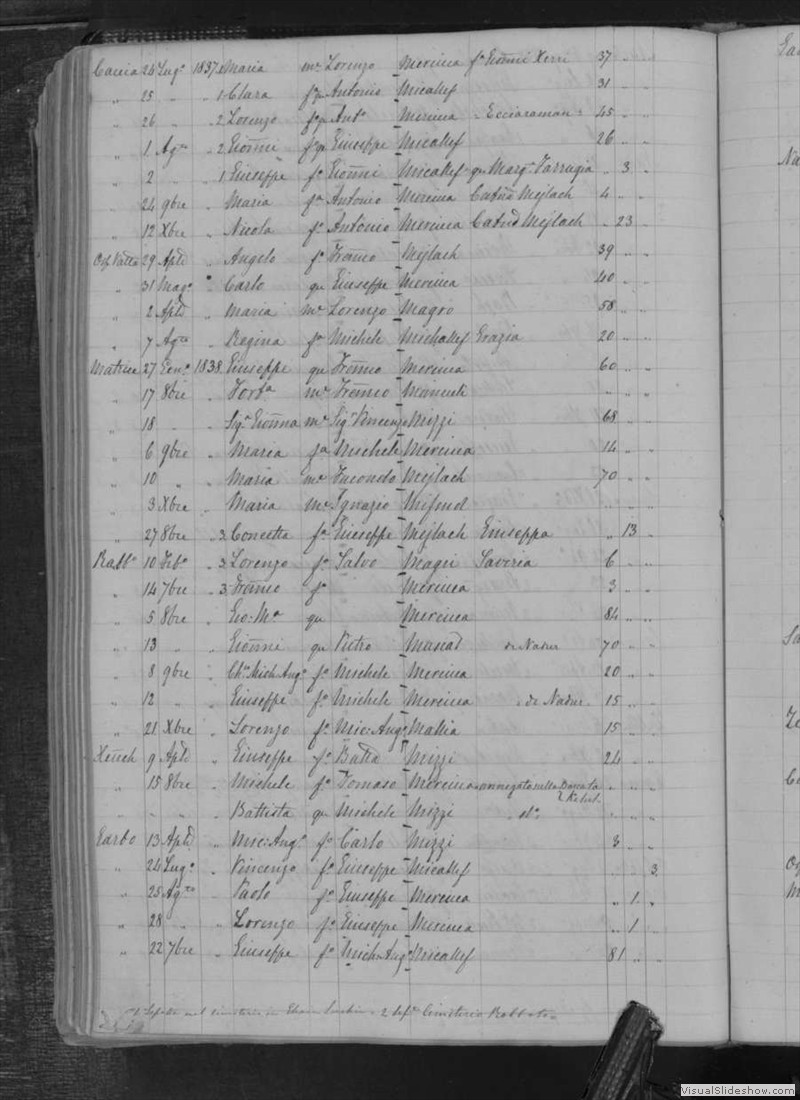 Caccia 24 Lugo 1837 Maria me Lorenzo Mercieca fa Gionni Xerri 37 " "
" 25 " " 1 Clara fa qu Antonio Micallef 31 " "
" 26 " " 2 Lorenzo fo qu Anto Mercieca 45 " "
" 1 Agto " 2 Gionni fo qu Giuseppe Micallef 26 " "
" 2 " 1 Giuseppe fo Gionni Micallef qu Marga Farrugia " 3 "
" 24 9bre " Maria fa Antonio Mercieca Catna Mejlach 4 " "
" 12 Xbre " Nicola fo Antonio Mercieca Catna Mejlach " 23 "
29 Aple " Angelo fo Franco Mejlach 39 " "
" 31 Mago " Carlo qu Giuseppe Mercieca 40 " "
" 2 Aple " Maria me Lorenzo Magro 58 " "
" 7 Agto " Regina fa Michele Michallef Grazia 20 " "
Matrice 27 Geno 1838 Giuseppe qu Franco Mercieca 60 " "
" 17 8bre " me Franco " " "
" 18 " " Siga Gionna me Sigr Vincenzo Mizzi 68 " "
" 6 9bre " Maria fa Michele Mercieca 14 " "
" 10 " " Maria me Facondo Mejlach 70 " "
" 3 Xbre " Maria me Ignazio Mifsud " " "
" 27 8bre " 3 Concetta fa Giuseppe Mejlach Giuseppa " 13 "
Rabbo 10 Febo " 3 Lorenzo fo Salvo Magri Saveria 6 " "
" 14 7bre " 3 Franco fo Mercieca 3 " "
" 5 8bre " Gio: Ma qu Mercieca 84 " "
" 13 " " Gionni qu Pietro Muscat de Nadur 70 " "
" 8 9bre " Mich: Ango fo Michele Mercieca 20 " "
" 12 " " Giuseppe fo Michele Mercieca de Nadur 15 " "
" 21 Xbre " Lorenzo fo Mic: Ango Mallia 15 " "
Xeuch 9 Aple " Giuseppe fo Batta Mizzi 24 " "
" 15 8bre " Michele fo Tomaso Mercieca annegato nella Barcata " " "
" " " Battista qu Michele Mizzi " do " " "
Garbo 13 Aple " Mic: Ango fo Carlo Mizzi 3 " "
" 24 Lugo " Vincenzo fo Giuseppe Micallef " " 3
" 25 Agto " Paolo fo Giuseppe Mercieca " 1 "
" 28 " " Lorenzo fo Giuseppe Mercieca " 1 "
" 22 7bre " Giuseppe fo Mich: Ango Micallef 81 " "
nel cimiterio 2 Cimiterio Rabbato
VisualSlideshow.com